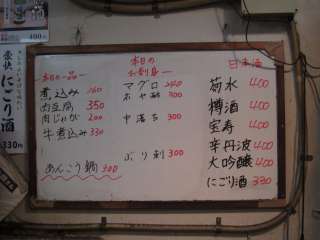 400円
豪快
にごり酒
330円
本日の一品
煮込み 260
肉豆腐 350
肉じゃが 200
牛煮込み 330
あんこう鍋 300
本日の
お刺身
マグロ 240
ホヤ酢 300
中落ち 300
ぶり刺 300
日本酒
菊水 400
樽酒 400
宝寿 400
辛丹波 400
大吟醸 400
にごり酒 330